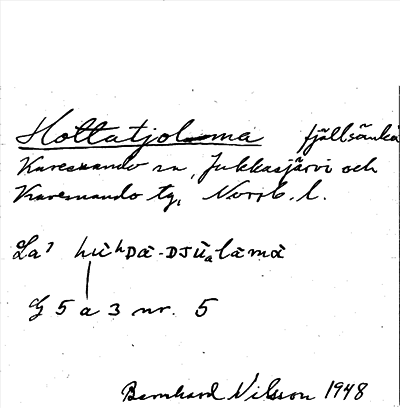 Hottatjolma fjällsänka
Karesuando sn, Jukkasjärvi och
Karesuando tg, Norrb. l.
La⁷ hùʰDa-DJŭₐlāmà
G 5 a 3 nr. 5
Bernhard Nilsson 1948